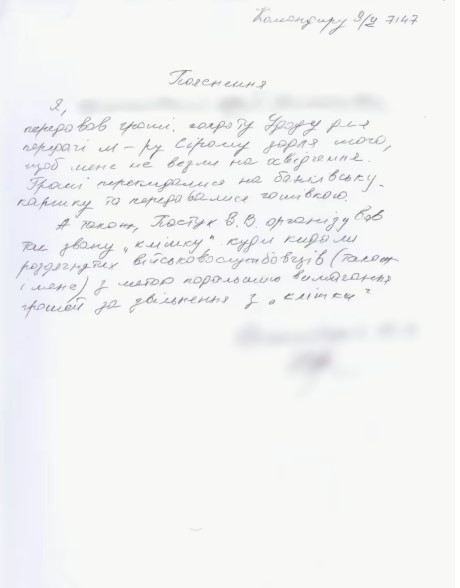 Командиру В/Ч 7147
Пояснення
Я,
передавав гроші солдату Уроду для
передачі м-ру Сірому задля того,
щоб мене не везли на освідчення.
Гроші перекидалися на банківську
картку та передавалися готівкою.
А також, Пастух В.В. організував
так звану „клітку" куди кидали
роздягнутих військовослужбовців (також
і мене) з метою подальшого вимагання
грошей за звільнення з „клітки"